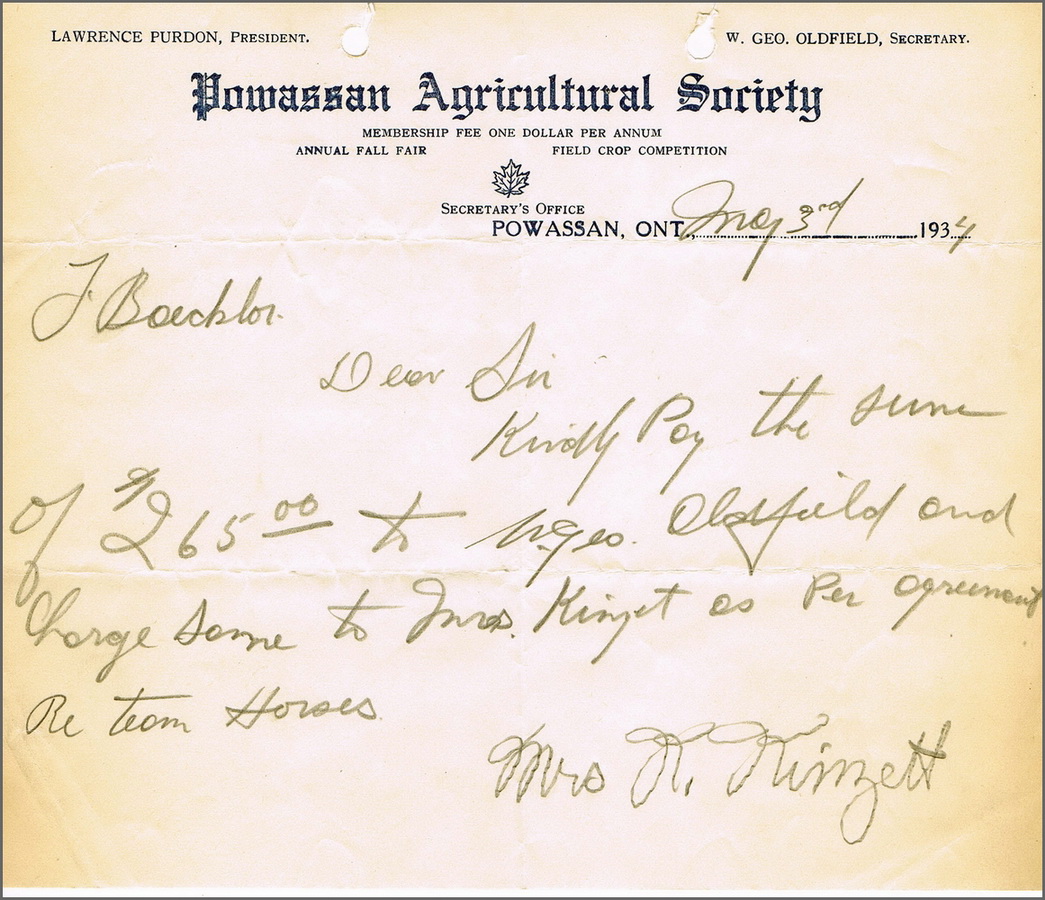 LAWRENCE PURDON, PRESIDENT. W. GEO. OLDFIELD, SECRETARY.
Powassan Agricultural Society
MEMBERSHIP FEE ONE DOLLAR PER ANNUM
ANNUAL FALL FAIR FIELD CROP COMPETITION
SECRETARY'S OFFICE
POWASSAN, ONT., May 3rd 1934
J. Boeckler.
Dear Sir
Kindly Pay the sum
of $265.00 to W. Geo. Oldfield and
Charge same to Mrs. Kinzet as Per agreement
Re team Horses.
Mrs R. Kinzett